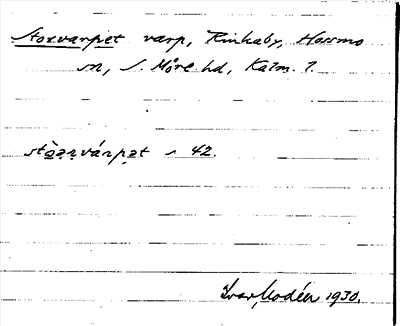 Storvarpet varp, Rinkaby, Hossmo
sn, S. Möre hd, Kalm. l.
stọ̀ạṛvárpạt s 42.
Ivar Modéer 1930.